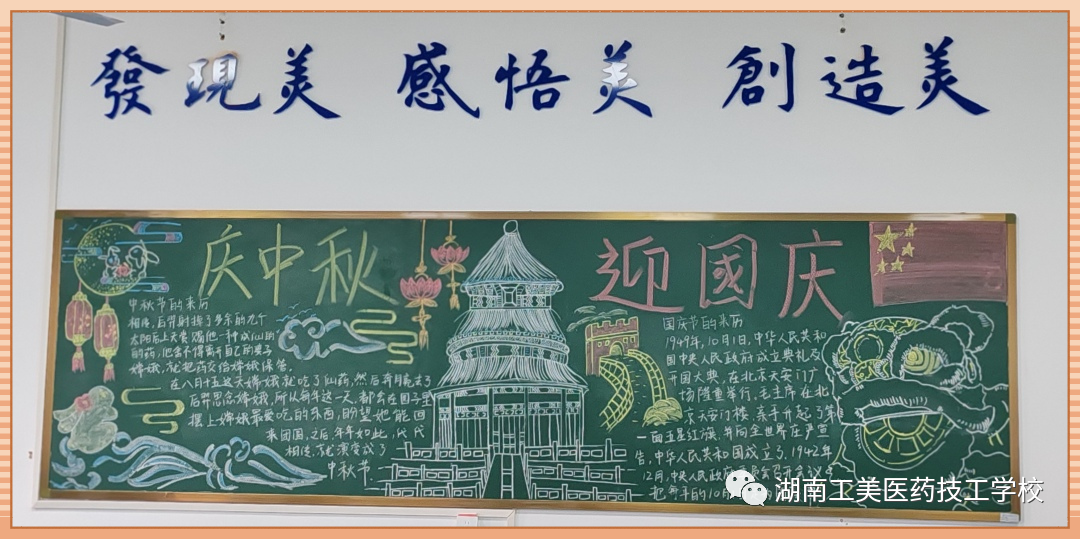 發現美 感悟美 創造美
庆中秋
迎國庆
中秋节的来历
相传,后羿射掉了多余的九个
太阳后上天赏赐他一种成仙的
的药,他舍不得离开自己的妻子
嫦娥,就把药交给嫦娥保管。
在八月十五这天嫦娥就吃了仙药,然后奔月飞去了
后羿思念嫦娥,所以每年这一天,都会在园子里
摆上嫦娥最爱吃的东西,盼望她能回
来团圆,之后,年年如此,代代
相传,就演变成了
中秋节.
国庆节的来历
1949年,10月1日,中华人民共和
国中央人民政府成立典礼及
开国大典,在北京天安门广
场隆重举行,毛主席在北
京天安门楼,亲手升起了第
一面五星红旗,并向全世界庄严宣
告,中华人民共和国成立了,1942年
12月,中央人民政府
把每年的10月
湖南工美医药技工学校